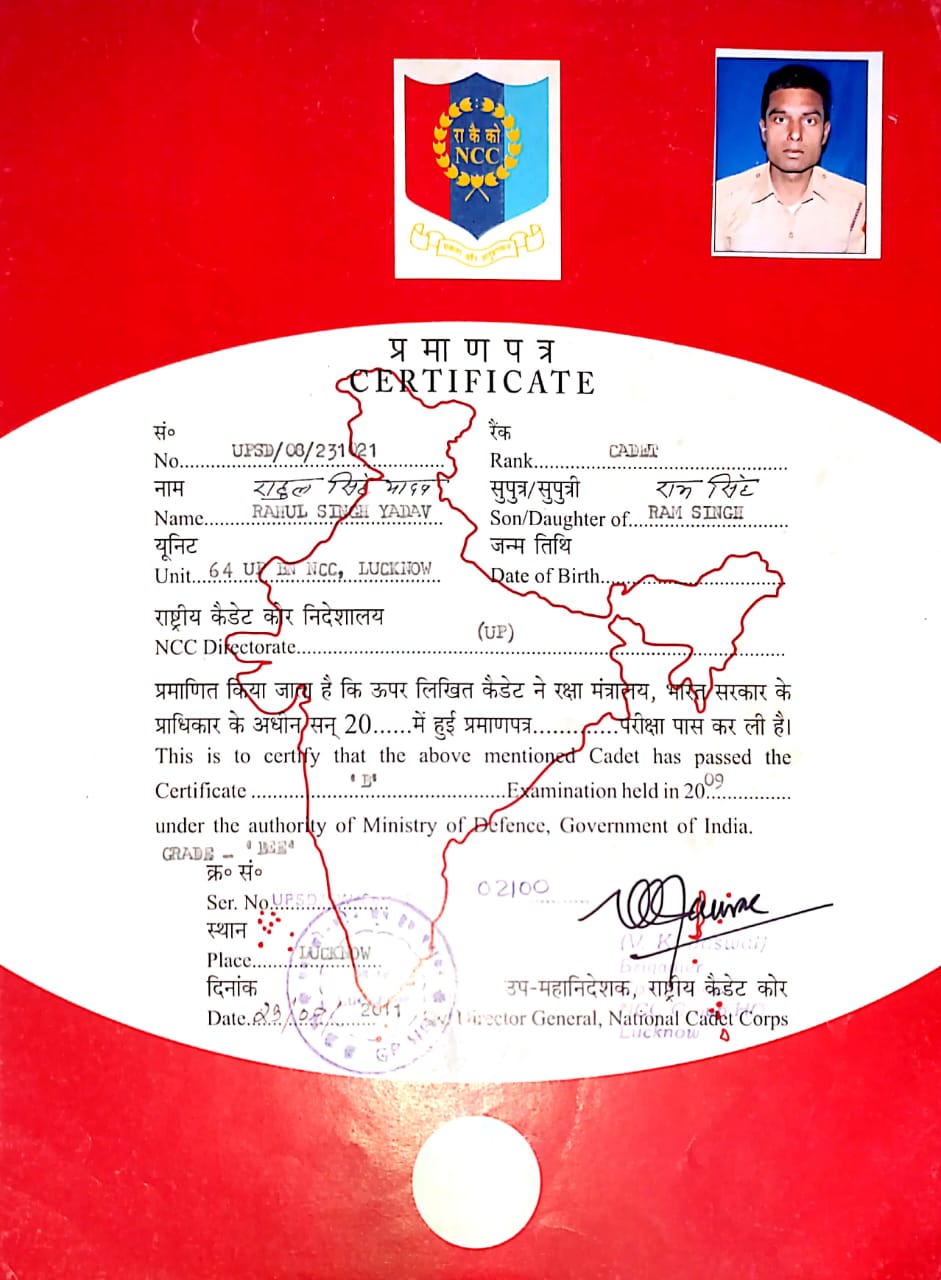 रा कै को
NCC
एकता और अनुशासन
प्रमाणपत्र
CERTIFICATE
सं०
No. UPSD/08/231021
रैंक
Rank CADET
नाम राहुल सिंह यादव
Name RAHUL SINGH YADAV
सुपुत्र/सुपुत्री राम सिंह
Son/Daughter of RAM SINGH
यूनिट
Unit 64 UP BN NCC, LUCKNOW
जन्म तिथि
Date of Birth
राष्ट्रीय कैडेट कोर निदेशालय
NCC Directorate (UP)
प्रमाणित किया जाता है कि ऊपर लिखित कैडेट ने रक्षा मंत्रालय, भारत सरकार के
प्राधिकार के अधीन सन् 20......में हुई प्रमाणपत्र.............परीक्षा पास कर ली है।
This is to certify that the above mentioned Cadet has passed the
Certificate 'B' Examination held in 2009
under the authority of Ministry of Defence, Government of India.
GRADE - 'BEE'
क्र० सं०
Ser. No. UPSD 02100
स्थान
Place LUCKNOW
दिनांक
Date 2011
Brigadier
उप-महानिदेशक, राष्ट्रीय कैडेट कोर
Director General, National Cadet Corps
Lucknow